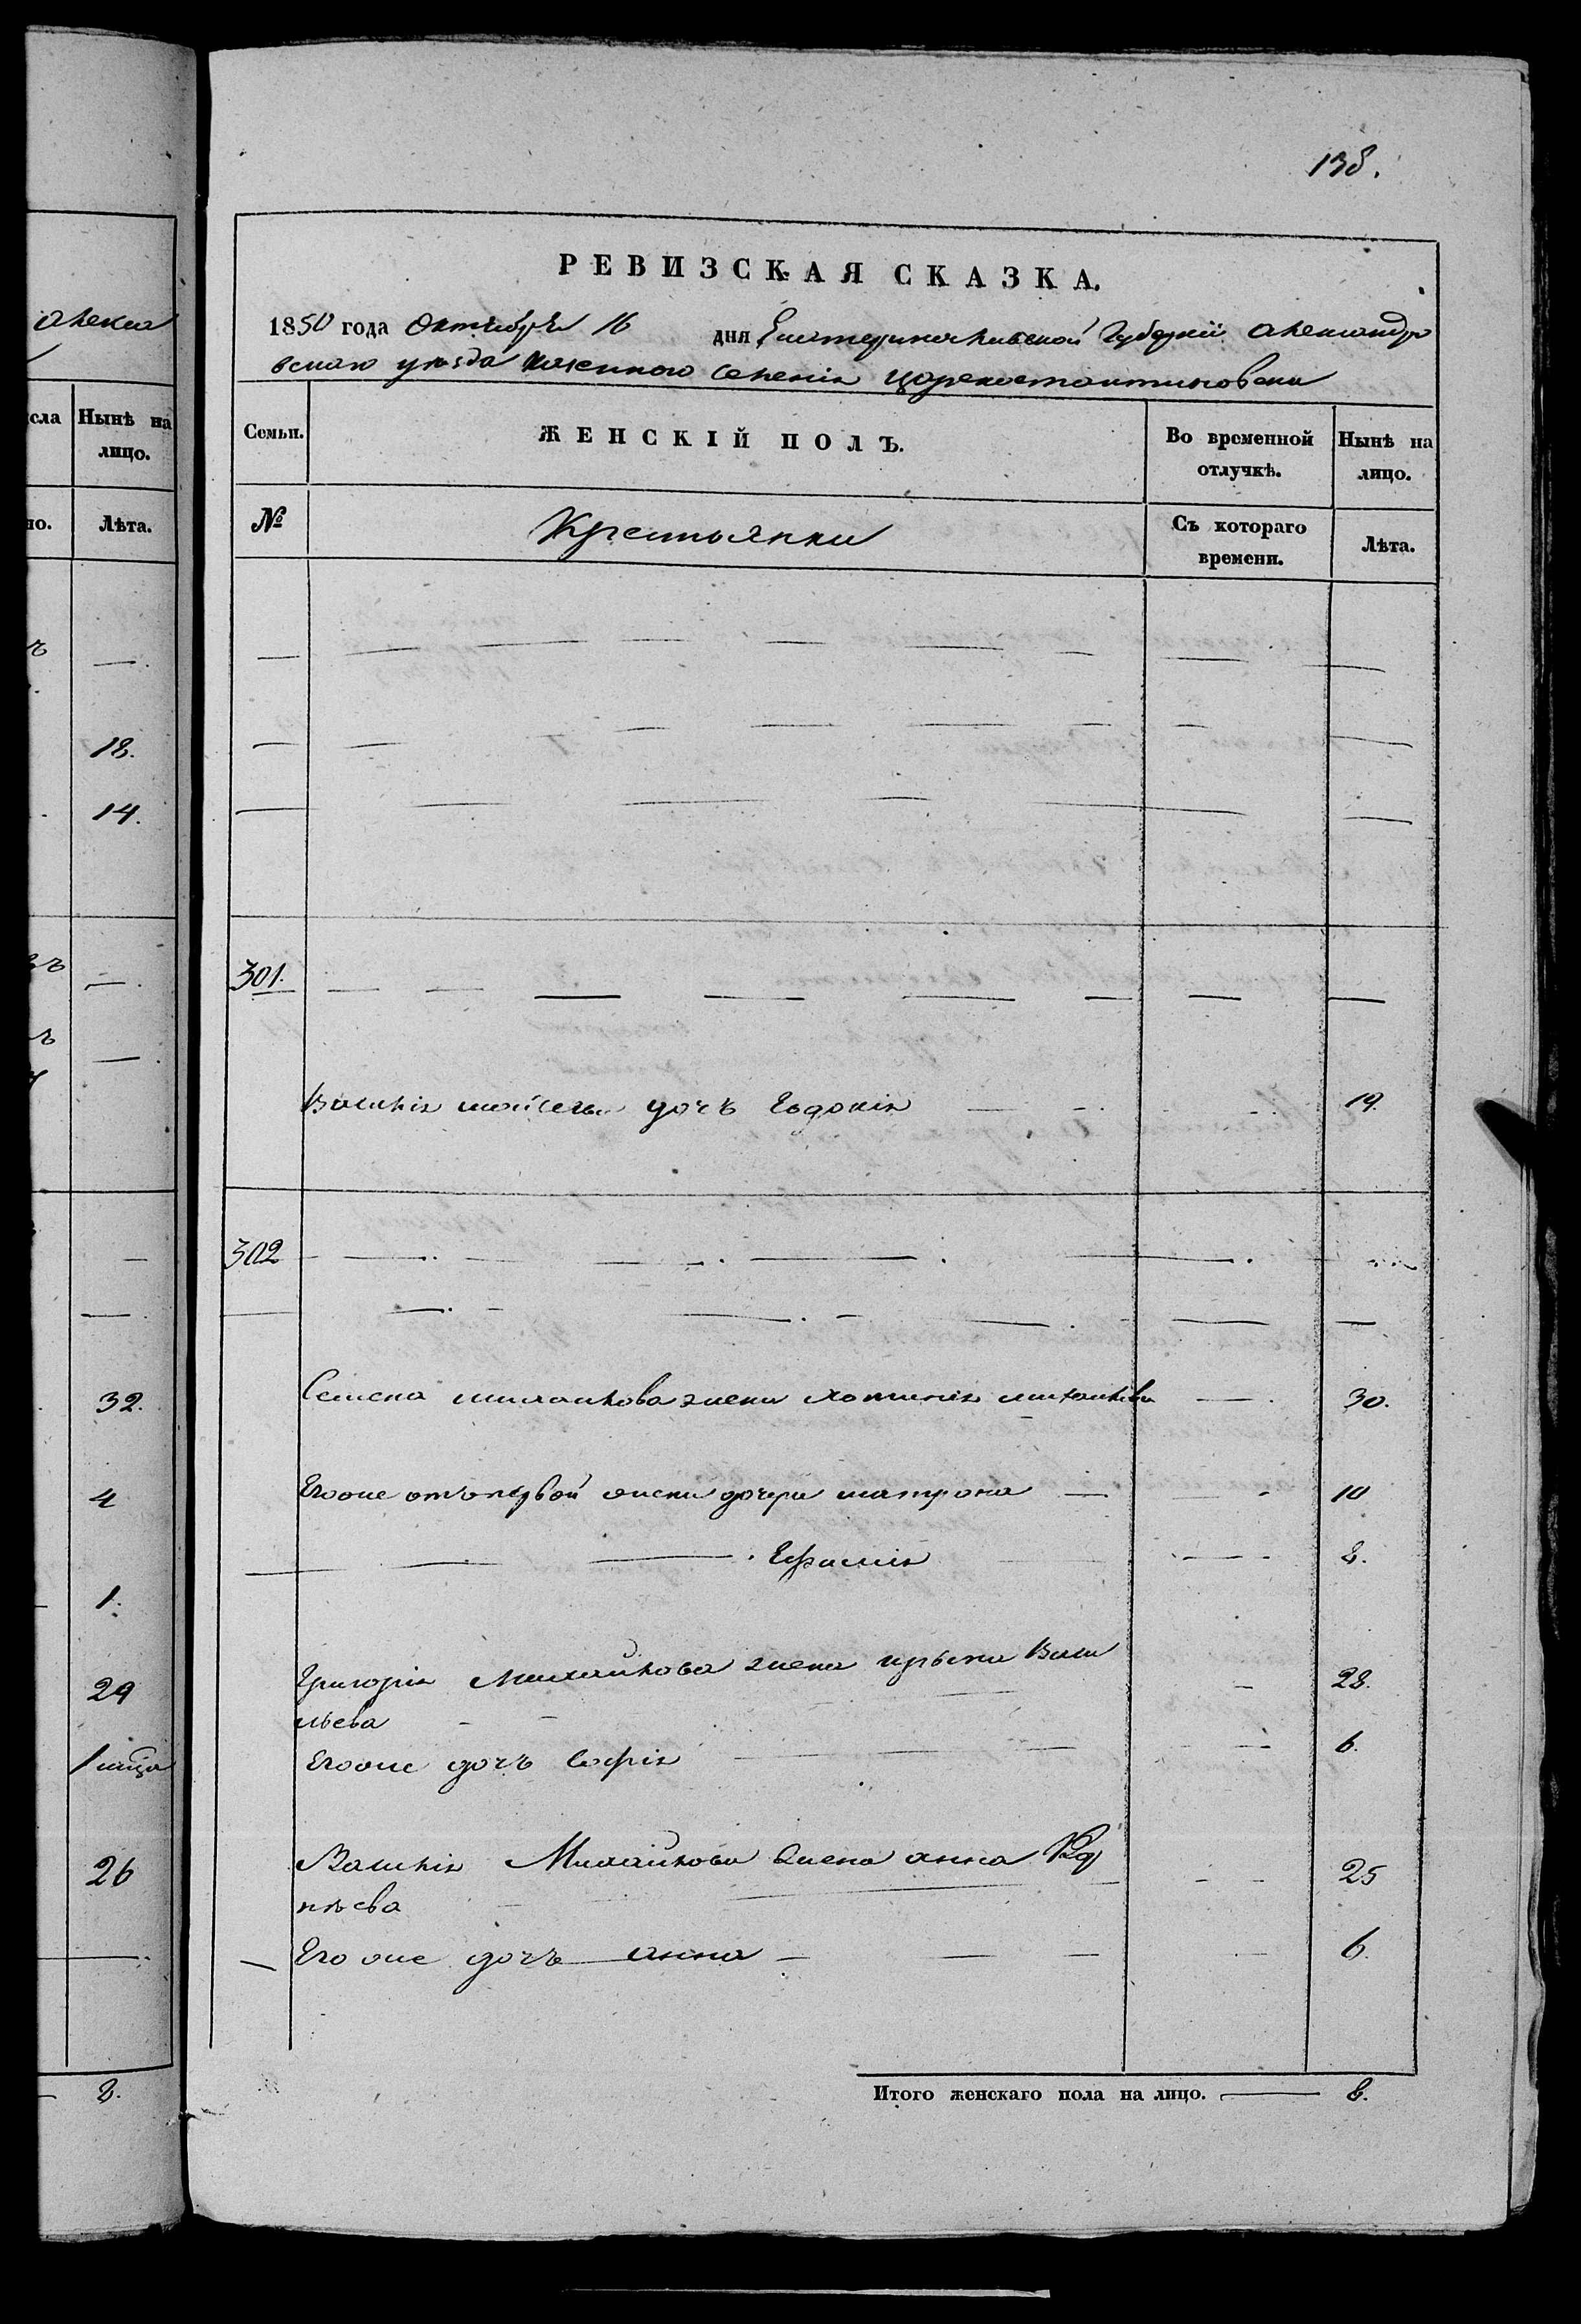 138.
РЕВИЗСКАЯ СКАЗКА.
1850 года Октября 16 дня Екатеринославской Губернии Александро
вскаго уезда казенного селения Цареконстантиновски
Семьи.
ЖЕНСКІЙ ПОЛЪ.
Во временной отлучкѣ.
Нынѣ на лицо.
№
Крестьянки
Съ котораго времени.
Лѣта.
301.
Василия дочь Евдокия 19.
302
Семена Михайлова жена Михайлова 30.
Его же от первой жены дочери матрона 10
Ефимия 8.
Григория Михайлова жена Ирына Васи 28.
льева
Его же дочь Софія 6.
Василия Михайлова жена анна 25
Его же дочь анна 6.
Итого женскаго пола на лицо. 8.
сла
Нынѣ на лицо.
но.
Лѣта.
18.
14.
32.
4
1.
29
26
8.